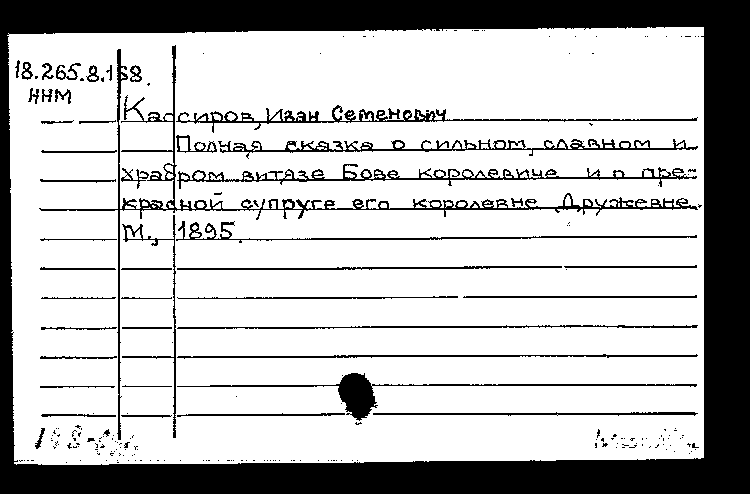 18.265.8.168.
ННМ
Кассиров, Иван Семенович
Полная сказка о сильном, славном и
храбром витязе Бове королевиче и о пре-
красной супруге его королевне Дружевне.
М., 1895.